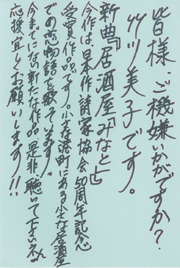 皆様、ご機嫌いかがですか?
艸川美子です。
新曲『居酒屋「みなと」』
今作は、日本作詩家協会50周年記念
受賞作品です。小さな港町にある小さな居酒屋
での恋物語を歌っています。
今までにない新たな作品、是非、聴いて下さいネ
応援宜しくお願いします!!